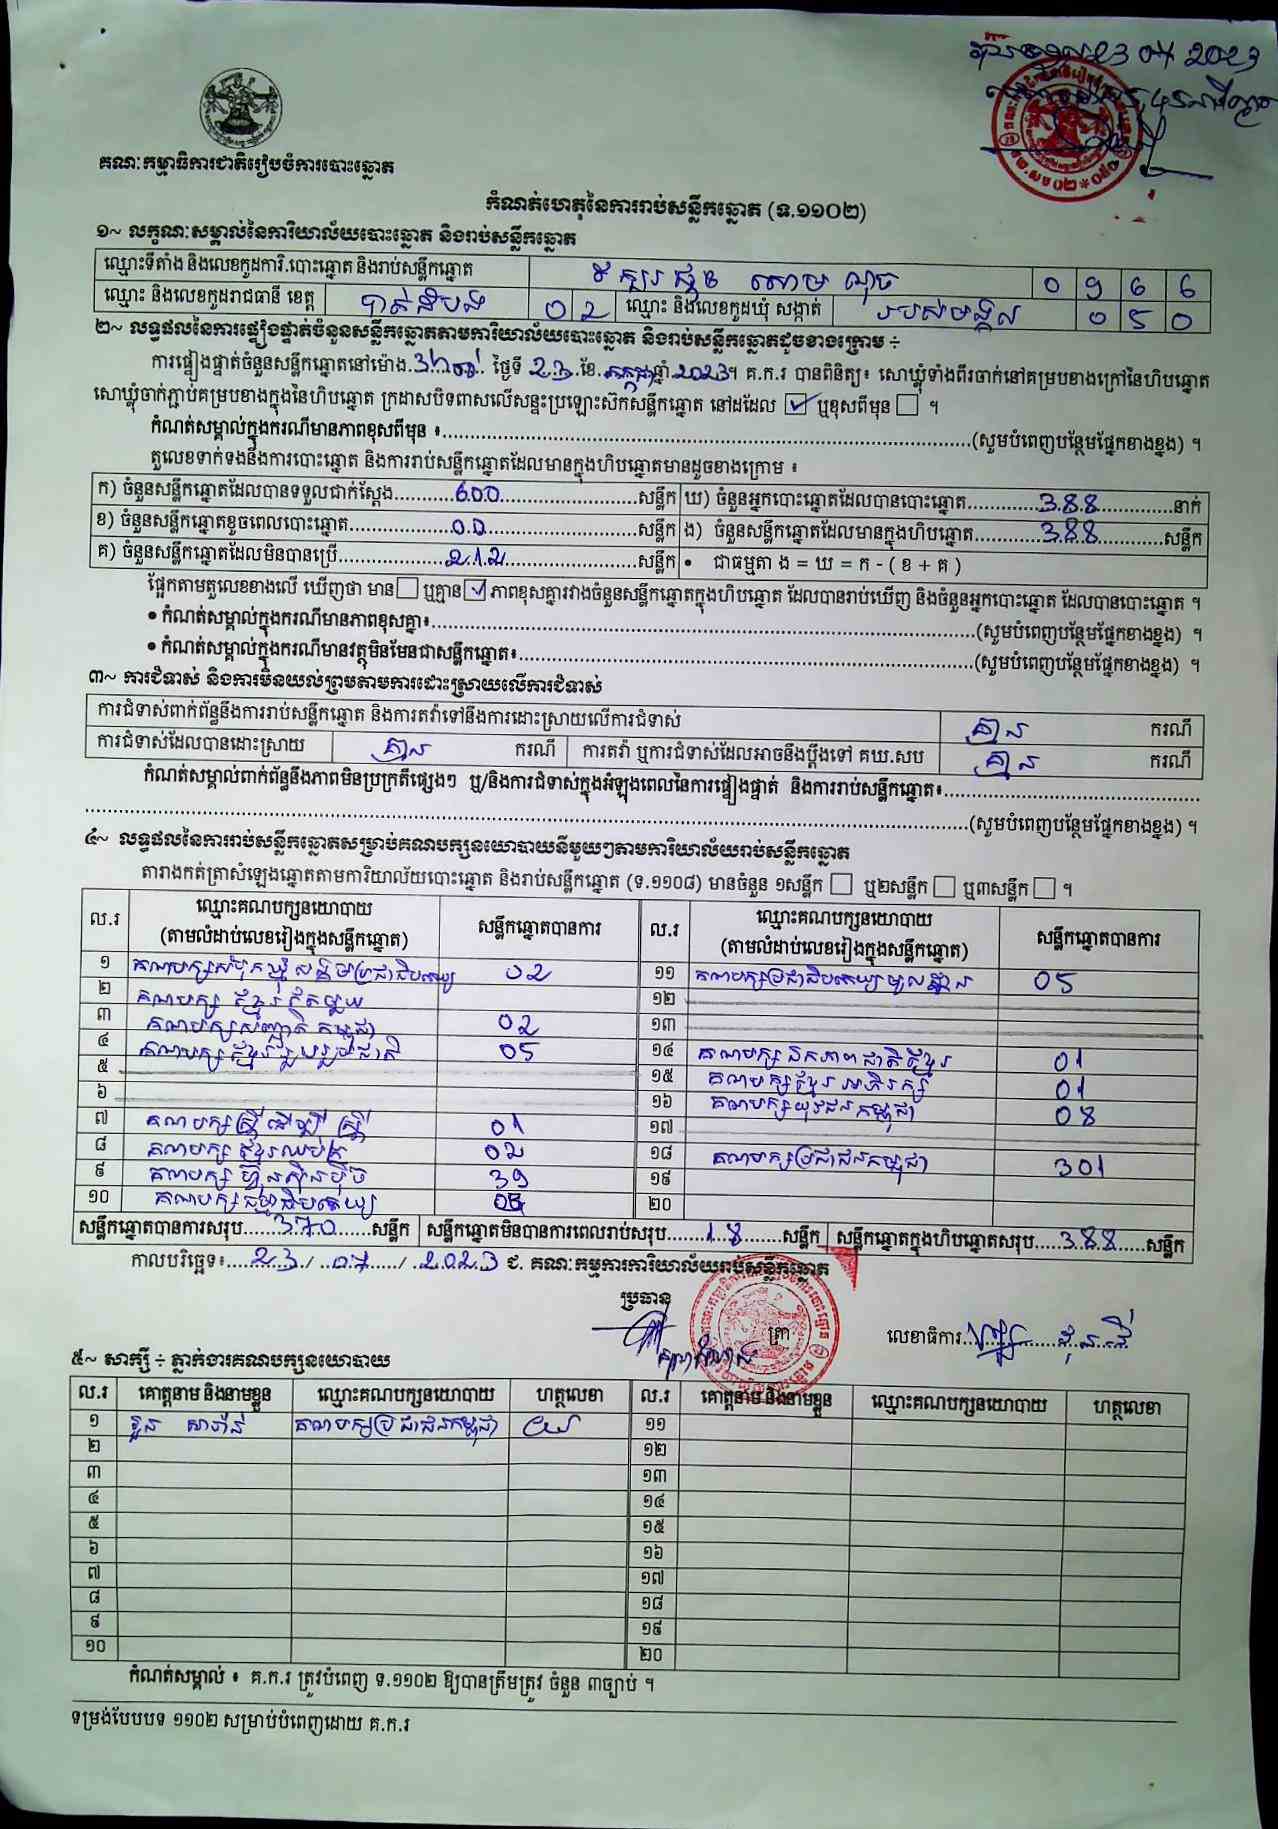 23 07 2023
គណៈកម្មាធិការជាតិរៀបចំការបោះឆ្នោត
កំណត់ហេតុនៃការរាប់សន្លឹកឆ្នោត (ទ.១១០២)
១~ លក្ខណៈសម្គាល់នៃការិយាល័យបោះឆ្នោត និងរាប់សន្លឹកឆ្នោត
ឈ្មោះទីតាំង និងលេខកូដការិ.បោះឆ្នោត និងរាប់សន្លឹកឆ្នោត 0 9 6 6
ឈ្មោះ និងលេខកូដរាជធានី ខេត្ត បាត់ដំបង 0 2 ឈ្មោះ និងលេខកូដឃុំ សង្កាត់ របស់មង្គល 0 5 0
២~ លទ្ធផលនៃការផ្ទៀងផ្ទាត់ចំនួនសន្លឹកឆ្នោតតាមការិយាល័យបោះឆ្នោត និងរាប់សន្លឹកឆ្នោតដូចខាងក្រោម ÷
ការផ្ទៀងផ្ទាត់ចំនួនសន្លឹកឆ្នោតនៅម៉ោង ថ្ងៃទី 23 ខែ កក្កដា ឆ្នាំ 2023។ គ.ក.រ បានពិនិត្យ៖ សោឃ្លុំទាំងពីរចាក់នៅគម្របខាងក្រៅនៃហិបឆ្នោត
សោឃ្លុំចាក់ភ្ជាប់គម្របខាងក្នុងនៃហិបឆ្នោត ក្រដាសបិទពាសលើសន្ទះប្រឡោះស៊កសន្លឹកឆ្នោត នៅដដែល ✓ ឬខុសពីមុន ។
កំណត់សម្គាល់ក្នុងករណីមានភាពខុសពីមុន ៖ (សូមបំពេញបន្ថែមផ្នែកខាងខ្នង) ។
តួលេខទាក់ទងនឹងការបោះឆ្នោត និងការរាប់សន្លឹកឆ្នោតដែលមានក្នុងហិបឆ្នោតមានដូចខាងក្រោម ៖
ក) ចំនួនសន្លឹកឆ្នោតដែលបានទទួលជាក់ស្តែង 600 សន្លឹក ឃ) ចំនួនអ្នកបោះឆ្នោតដែលបានបោះឆ្នោត 388 នាក់
ខ) ចំនួនសន្លឹកឆ្នោតខូចពេលបោះឆ្នោត 00 សន្លឹក ង) ចំនួនសន្លឹកឆ្នោតដែលមានក្នុងហិបឆ្នោត 388 សន្លឹក
គ) ចំនួនសន្លឹកឆ្នោតដែលមិនបានប្រើ 212 សន្លឹក • ជាធម្មតា ង = ឃ = ក - ( ខ + គ )
ផ្អែកតាមតួលេខខាងលើ ឃើញថា មាន ឬគ្មាន ✓ ភាពខុសគ្នារវាងចំនួនសន្លឹកឆ្នោតក្នុងហិបឆ្នោត ដែលបានរាប់ឃើញ និងចំនួនអ្នកបោះឆ្នោត ដែលបានបោះឆ្នោត ។
• កំណត់សម្គាល់ក្នុងករណីមានភាពខុសគ្នា៖ (សូមបំពេញបន្ថែមផ្នែកខាងខ្នង) ។
• កំណត់សម្គាល់ក្នុងករណីមានវត្ថុមិនមែនជាសន្លឹកឆ្នោត៖ (សូមបំពេញបន្ថែមផ្នែកខាងខ្នង) ។
៣~ ការជំទាស់ និងការមិនយល់ព្រមតាមការដោះស្រាយលើការជំទាស់
ការជំទាស់ពាក់ព័ន្ធនឹងការរាប់សន្លឹកឆ្នោត និងការតវ៉ាទៅនឹងការដោះស្រាយលើការជំទាស់ គ្មាន ករណី
ការជំទាស់ដែលបានដោះស្រាយ គ្មាន ករណី ការតវ៉ា ឬការជំទាស់ដែលអាចនឹងប្តឹងទៅ គឃ.សប គ្មាន ករណី
កំណត់សម្គាល់ពាក់ព័ន្ធនឹងភាពមិនប្រក្រតីផ្សេងៗ ឬ/និងការជំទាស់ក្នុងអំឡុងពេលនៃការផ្ទៀងផ្ទាត់ និងការរាប់សន្លឹកឆ្នោត៖
(សូមបំពេញបន្ថែមផ្នែកខាងខ្នង) ។
៤~ លទ្ធផលនៃការរាប់សន្លឹកឆ្នោតសម្រាប់គណបក្សនយោបាយនីមួយៗតាមការិយាល័យរាប់សន្លឹកឆ្នោត
តារាងកត់ត្រាសំឡេងឆ្នោតតាមការិយាល័យបោះឆ្នោត និងរាប់សន្លឹកឆ្នោត (ទ.១១០៨) មានចំនួន ១សន្លឹក ឬ២សន្លឹក ឬ៣សន្លឹក ។
ល.រ ឈ្មោះគណបក្សនយោបាយ (តាមលំដាប់លេខរៀងក្នុងសន្លឹកឆ្នោត) សន្លឹកឆ្នោតបានការ ល.រ ឈ្មោះគណបក្សនយោបាយ (តាមលំដាប់លេខរៀងក្នុងសន្លឹកឆ្នោត) សន្លឹកឆ្នោតបានការ
១ គណបក្សសំបុកឃ្មុំសង្គមប្រជាធិបតេយ្យ 02 ១១ គណបក្សប្រជាធិបតេយ្យមូលដ្ឋាន 05
២ គណបក្សខ្មែរតែមួយ ១២
៣ គណបក្សសញ្ជាតិកម្ពុជា 02 ១៣
៤ គណបក្សខ្មែររួបរួមជាតិ 05 ១៤ គណបក្សឯកភាពជាតិខ្មែរ 01
៥ ១៥ គណបក្សខ្មែរអភិរក្ស 01
៦ ១៦ គណបក្សយុវជនកម្ពុជា 08
៧ គណបក្សស្ត្រីដើម្បីស្ត្រី 01 ១៧
៨ គណបក្សខ្មែរឈប់ក្រ 02 ១៨ គណបក្សប្រជាជនកម្ពុជា 301
៩ គណបក្សហ៊្វុនស៊ិនប៉ិច 39 ១៩
១០ គណបក្សធម្មាធិបតេយ្យ ២០
សន្លឹកឆ្នោតបានការសរុប 370 សន្លឹក សន្លឹកឆ្នោតមិនបានការពេលរាប់សរុប 18 សន្លឹក សន្លឹកឆ្នោតក្នុងហិបឆ្នោតសរុប 388 សន្លឹក
កាលបរិច្ឆេទ៖ 23 / 07 / 2023 ជ. គណៈកម្មការការិយាល័យរាប់សន្លឹកឆ្នោត
ប្រធាន ត្រា លេខាធិការ
៥~ សាក្សី ÷ ភ្នាក់ងារគណបក្សនយោបាយ
ល.រ គោត្តនាម និងនាមខ្លួន ឈ្មោះគណបក្សនយោបាយ ហត្ថលេខា ល.រ គោត្តនាម និងនាមខ្លួន ឈ្មោះគណបក្សនយោបាយ ហត្ថលេខា
១ គណបក្សប្រជាជនកម្ពុជា ១១
២ ១២
៣ ១៣
៤ ១៤
៥ ១៥
៦ ១៦
៧ ១៧
៨ ១៨
៩ ១៩
១០ ២០
កំណត់សម្គាល់ ៖ គ.ក.រ ត្រូវបំពេញ ទ.១១០២ ឱ្យបានត្រឹមត្រូវ ចំនួន ៣ច្បាប់ ។
ទម្រង់បែបបទ ១១០២ សម្រាប់បំពេញដោយ គ.ក.រ